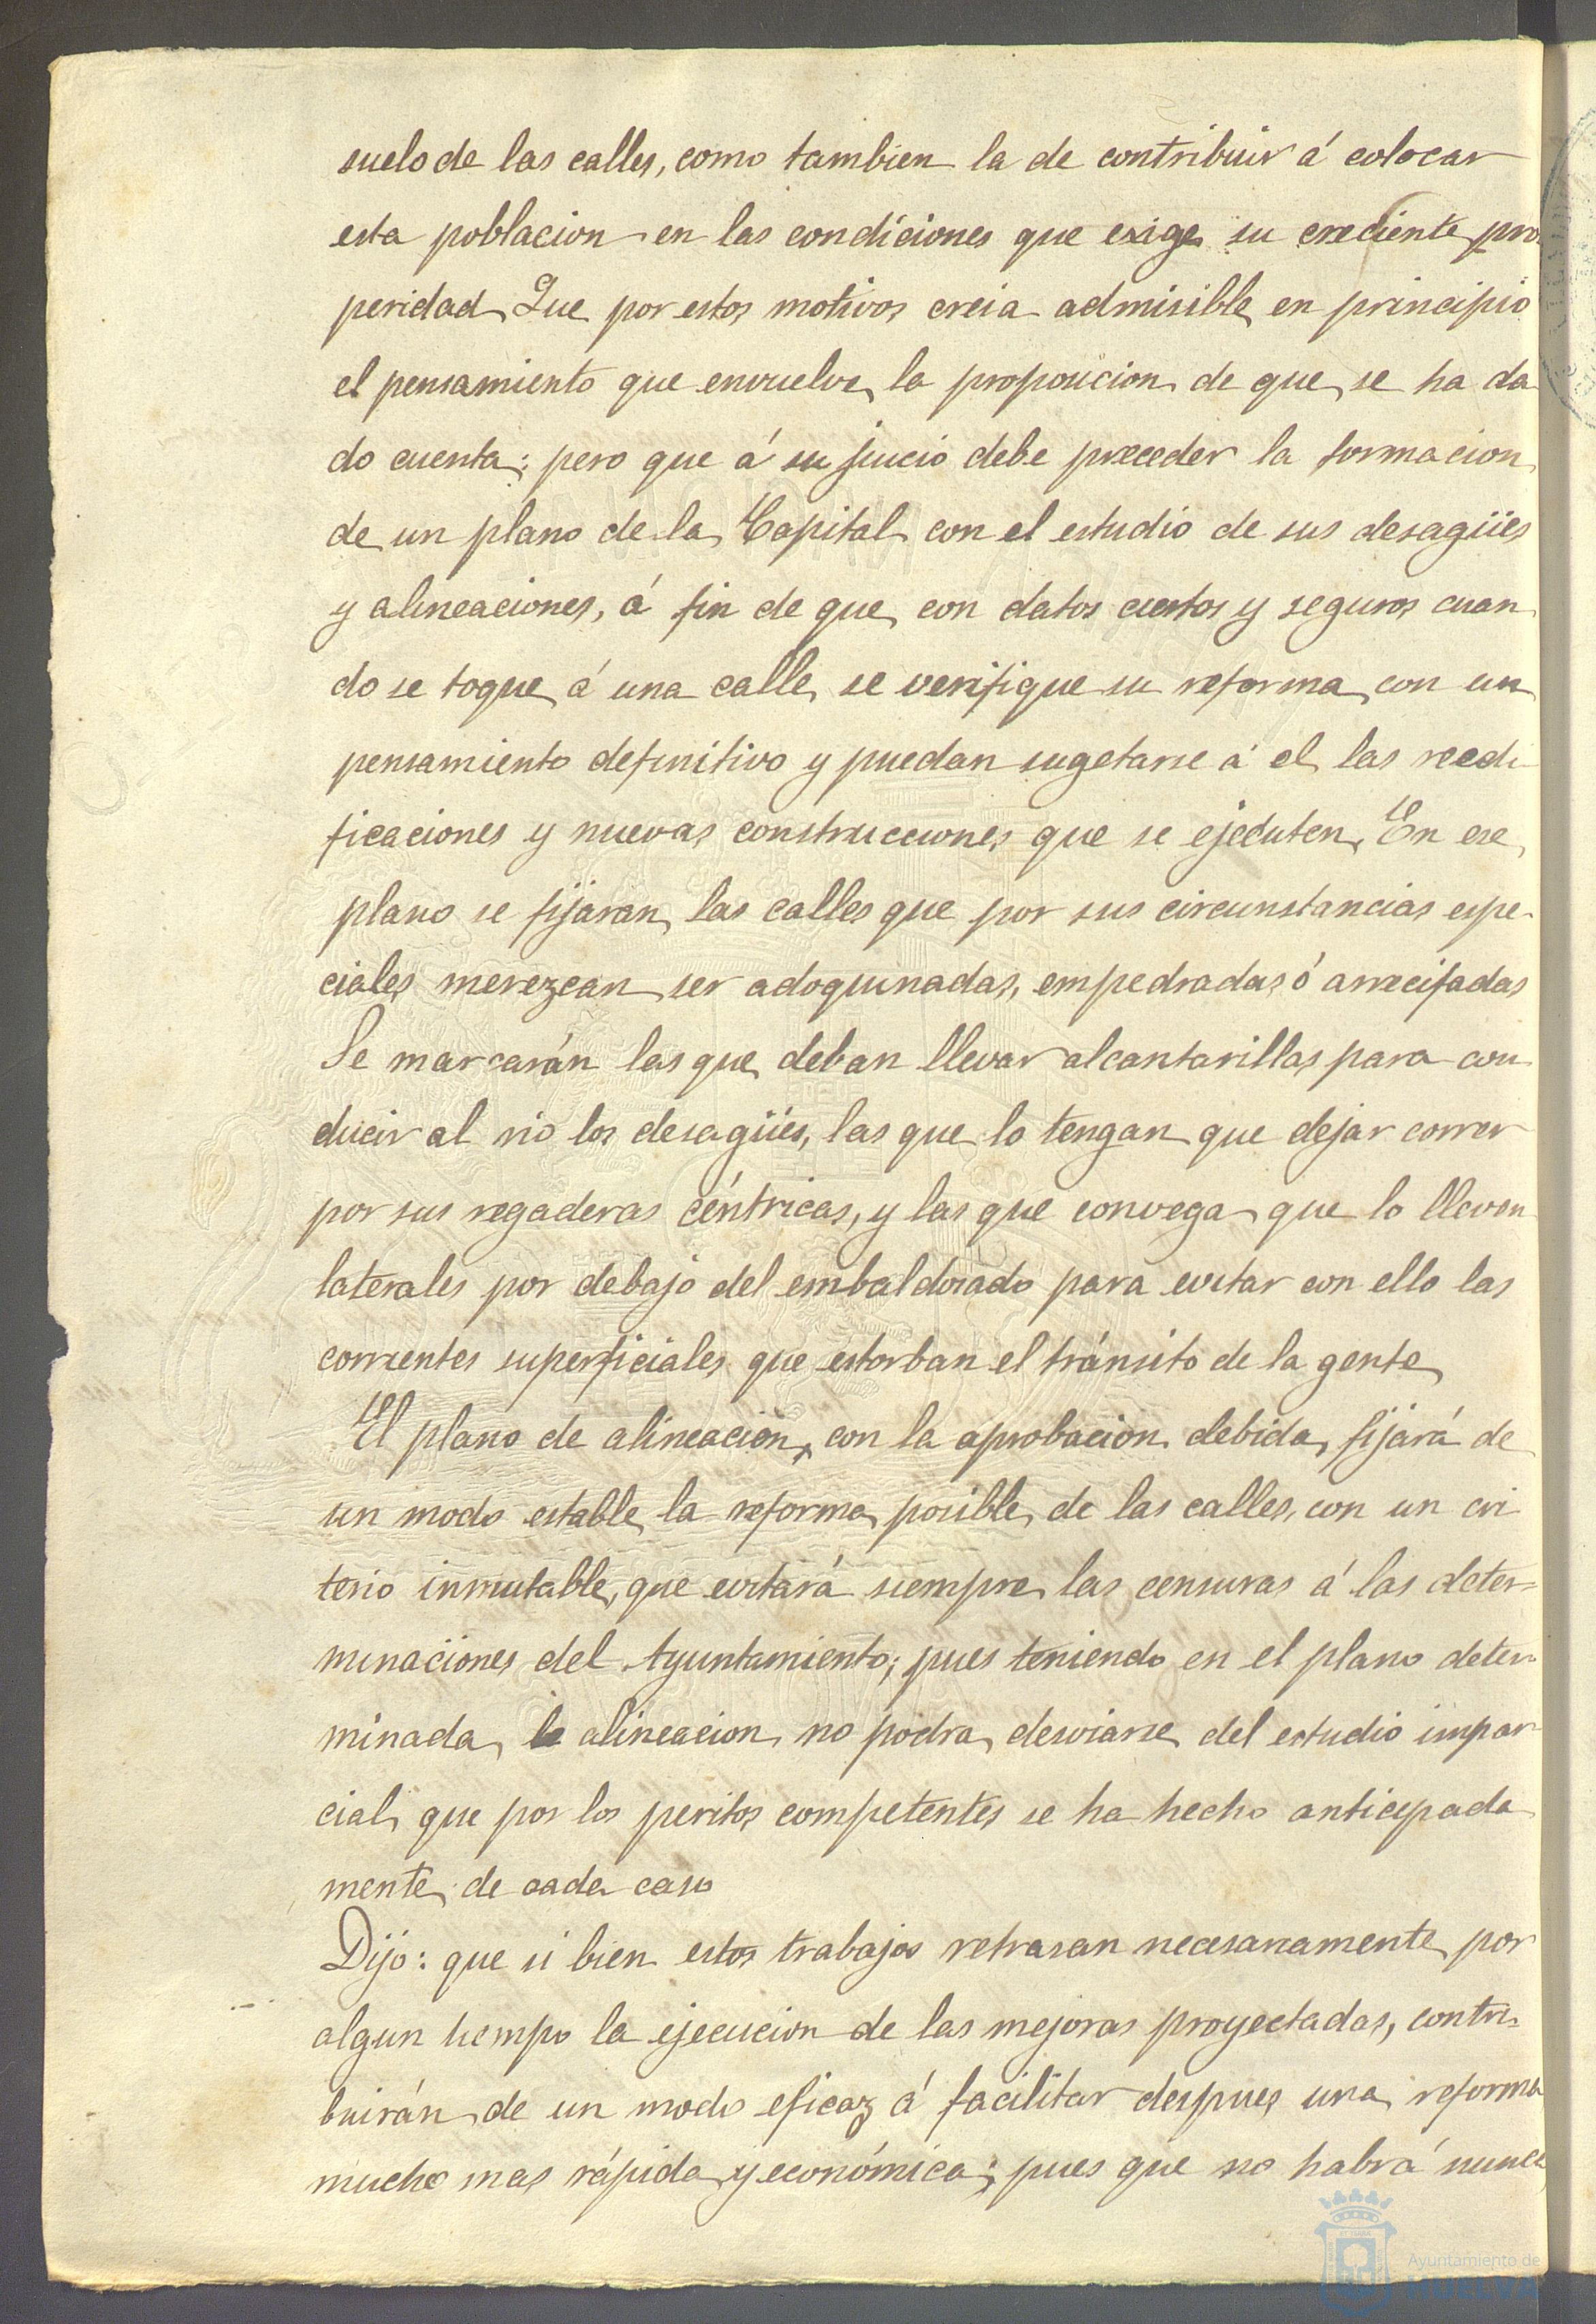 suelo de las calles, como tambien la de contribuir á colocar
esta poblacion en las condiciones que exige su creciente pros
peridad Que por estos motivos creia admisible en principio
el pensamiento que envuelve la proposicion de que se ha da
do cuenta; pero que á su juicio debe preceder la formacion
de un plano de la Capital con el estudio de sus desagües
y alineaciones, á fin de que con datos ciertos y seguros cuan
do se toque á una calle se verifique su reforma con un
pensamiento definitivo y puedan sugetarse á el las reedi
ficaciones y nuevas construcciones que se ejecuten. En ese
plano se fijaran las calles que por sus circunstancias espe-
ciales merezcan ser adoquinadas, empedradas ó arrecifadas
Se marcarán las que deban llevar alcantarillas para con
ducir al rio los desagües, las que lo tengan que dejar correr
por sus regaderas céntricas, y las que convega que lo lleven
laterales por debajo del embaldosado para evitar con ello las
corrientes superficiales que estorban el tránsito de la gente
El plano de alineacion, con la aprobacion debida, fijará de
un modo estable la reforma posible de las calles, con un cri
terio inmutable, que evitará siempre las censuras á las deter=
minaciones del Ayuntamiento; pues teniendo en el plano deter-
minada la alineacion no podra desviarse del estudio impar-
cial que por los peritos competentes se ha hecho anticipada
mente de cada caso
Dijo: que si bien estos trabajos retrasan necesariamente por
algun tiempo la ejecucion de las mejoras proyectadas, contri-
buirán de un modo eficaz á facilitar despues una reforma
mucho mas rápida y económica; pues que no habrá nunca
Ayuntamiento de
HUELVA